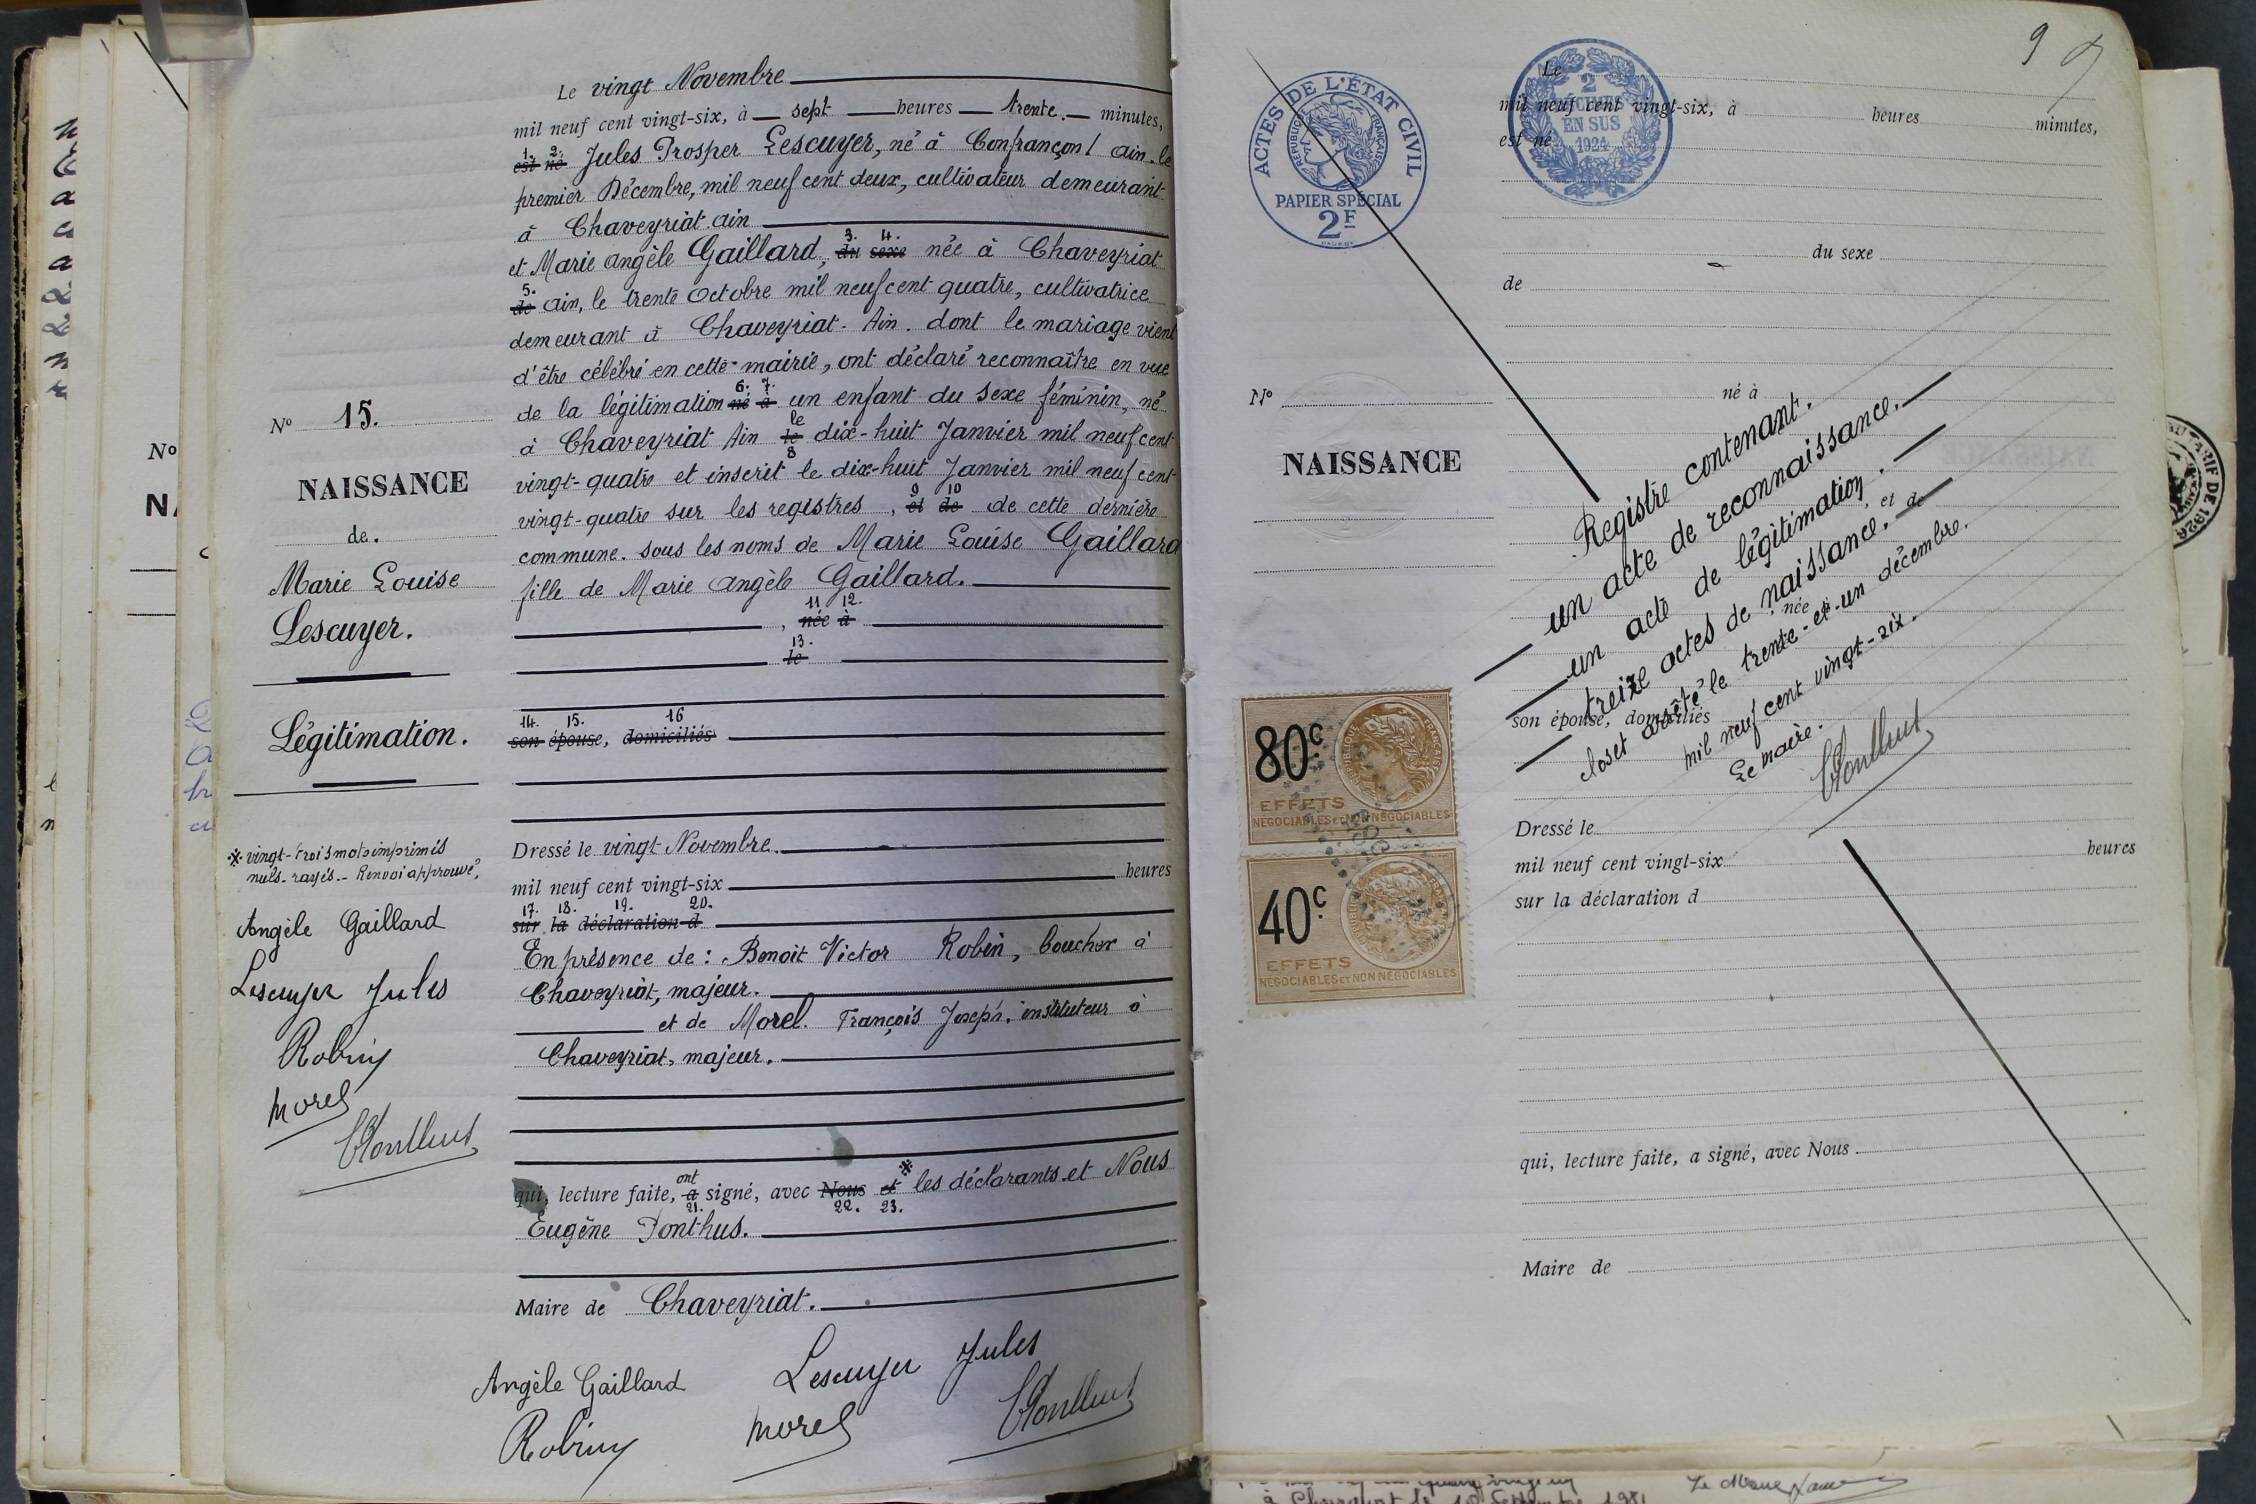 N° 15.
NAISSANCE
de.
Marie Louise
Lescuyer.
Légitimation.
※ vingt-trois mots imprimés
nuls. rayés.- Renvoi approuvé,
Angèle Gaillard
Lescuyer Jules
Robin
Morel
Ponthus
Le vingt Novembre
mil neuf cent vingt-six, à sept heures trente. minutes,
1. 2.
est né Jules Prosper Lescuyer, né à Confrançon / ain. le
premier Décembre, mil neuf cent deux, cultivateur demeurant
à Chaveyriat. ain
3. 4.
et Marie angèle Gaillard, du sexe née à Chaveyriat
5.
de ain, le trente Octobre mil neuf cent quatre, cultivatrice
demeurant à Chaveyriat. Ain. dont le mariage vient
d'être célébré en cette mairie, ont déclaré reconnaître en vue
6. 7.
de la légitimation né à un enfant du sexe féminin, né
le
à Chaveyriat Ain le dix-huit Janvier mil neuf cent
8
vingt-quatre et inscrit le dix-huit Janvier mil neuf cent
9 10
vingt-quatre sur les registres, et de de cette dernière
commune. sous les noms de Marie Louise Gaillard
fille de Marie angèle Gaillard.
11 12.
, née à
13.
le
14. 15. 16
son épouse, domiciliés
Dressé le vingt Novembre.
mil neuf cent vingt-six heures
17. 18. 19. 20.
sur la déclaration d
En présence de : Benoit Victor Robin, boucher à
Chaveyriat, majeur.
et de Morel. François Joseph. instituteur à
Chaveyriat, majeur.
ont ※
qui, lecture faite, a signé, avec Nous et les déclarants et Nous
21. 22. 23.
Eugène Ponthus.
Maire de Chaveyriat.
Angèle Gaillard Lescuyer Jules
Robin Morel Ponthus
9
ACTES DE L'ÉTAT CIVIL
RÉPUBLIQUE FRANÇAISE
PAPIER SPÉCIAL
2F
2
DÉCIMES
EN SUS
1924
Le
mil neuf cent vingt-six, à heures minutes,
est né
du sexe
de
né à
N°
NAISSANCE
Registre contenant.
un acte de reconnaissance.
un acte de légitimation.
, et de
treize actes de naissance.
, née à
closet arrêté le trente-et-un décembre.
mil neuf cent vingt-six.
Le maire.
Ponthus
son épouse, domiciliés
80c
EFFETS
NÉGOCIABLES ET NON NÉGOCIABLES
40c
EFFETS
NÉGOCIABLES ET NON NÉGOCIABLES
Dressé le
mil neuf cent vingt-six heures
sur la déclaration d
qui, lecture faite, a signé, avec Nous
Maire de
N°
Le Maire